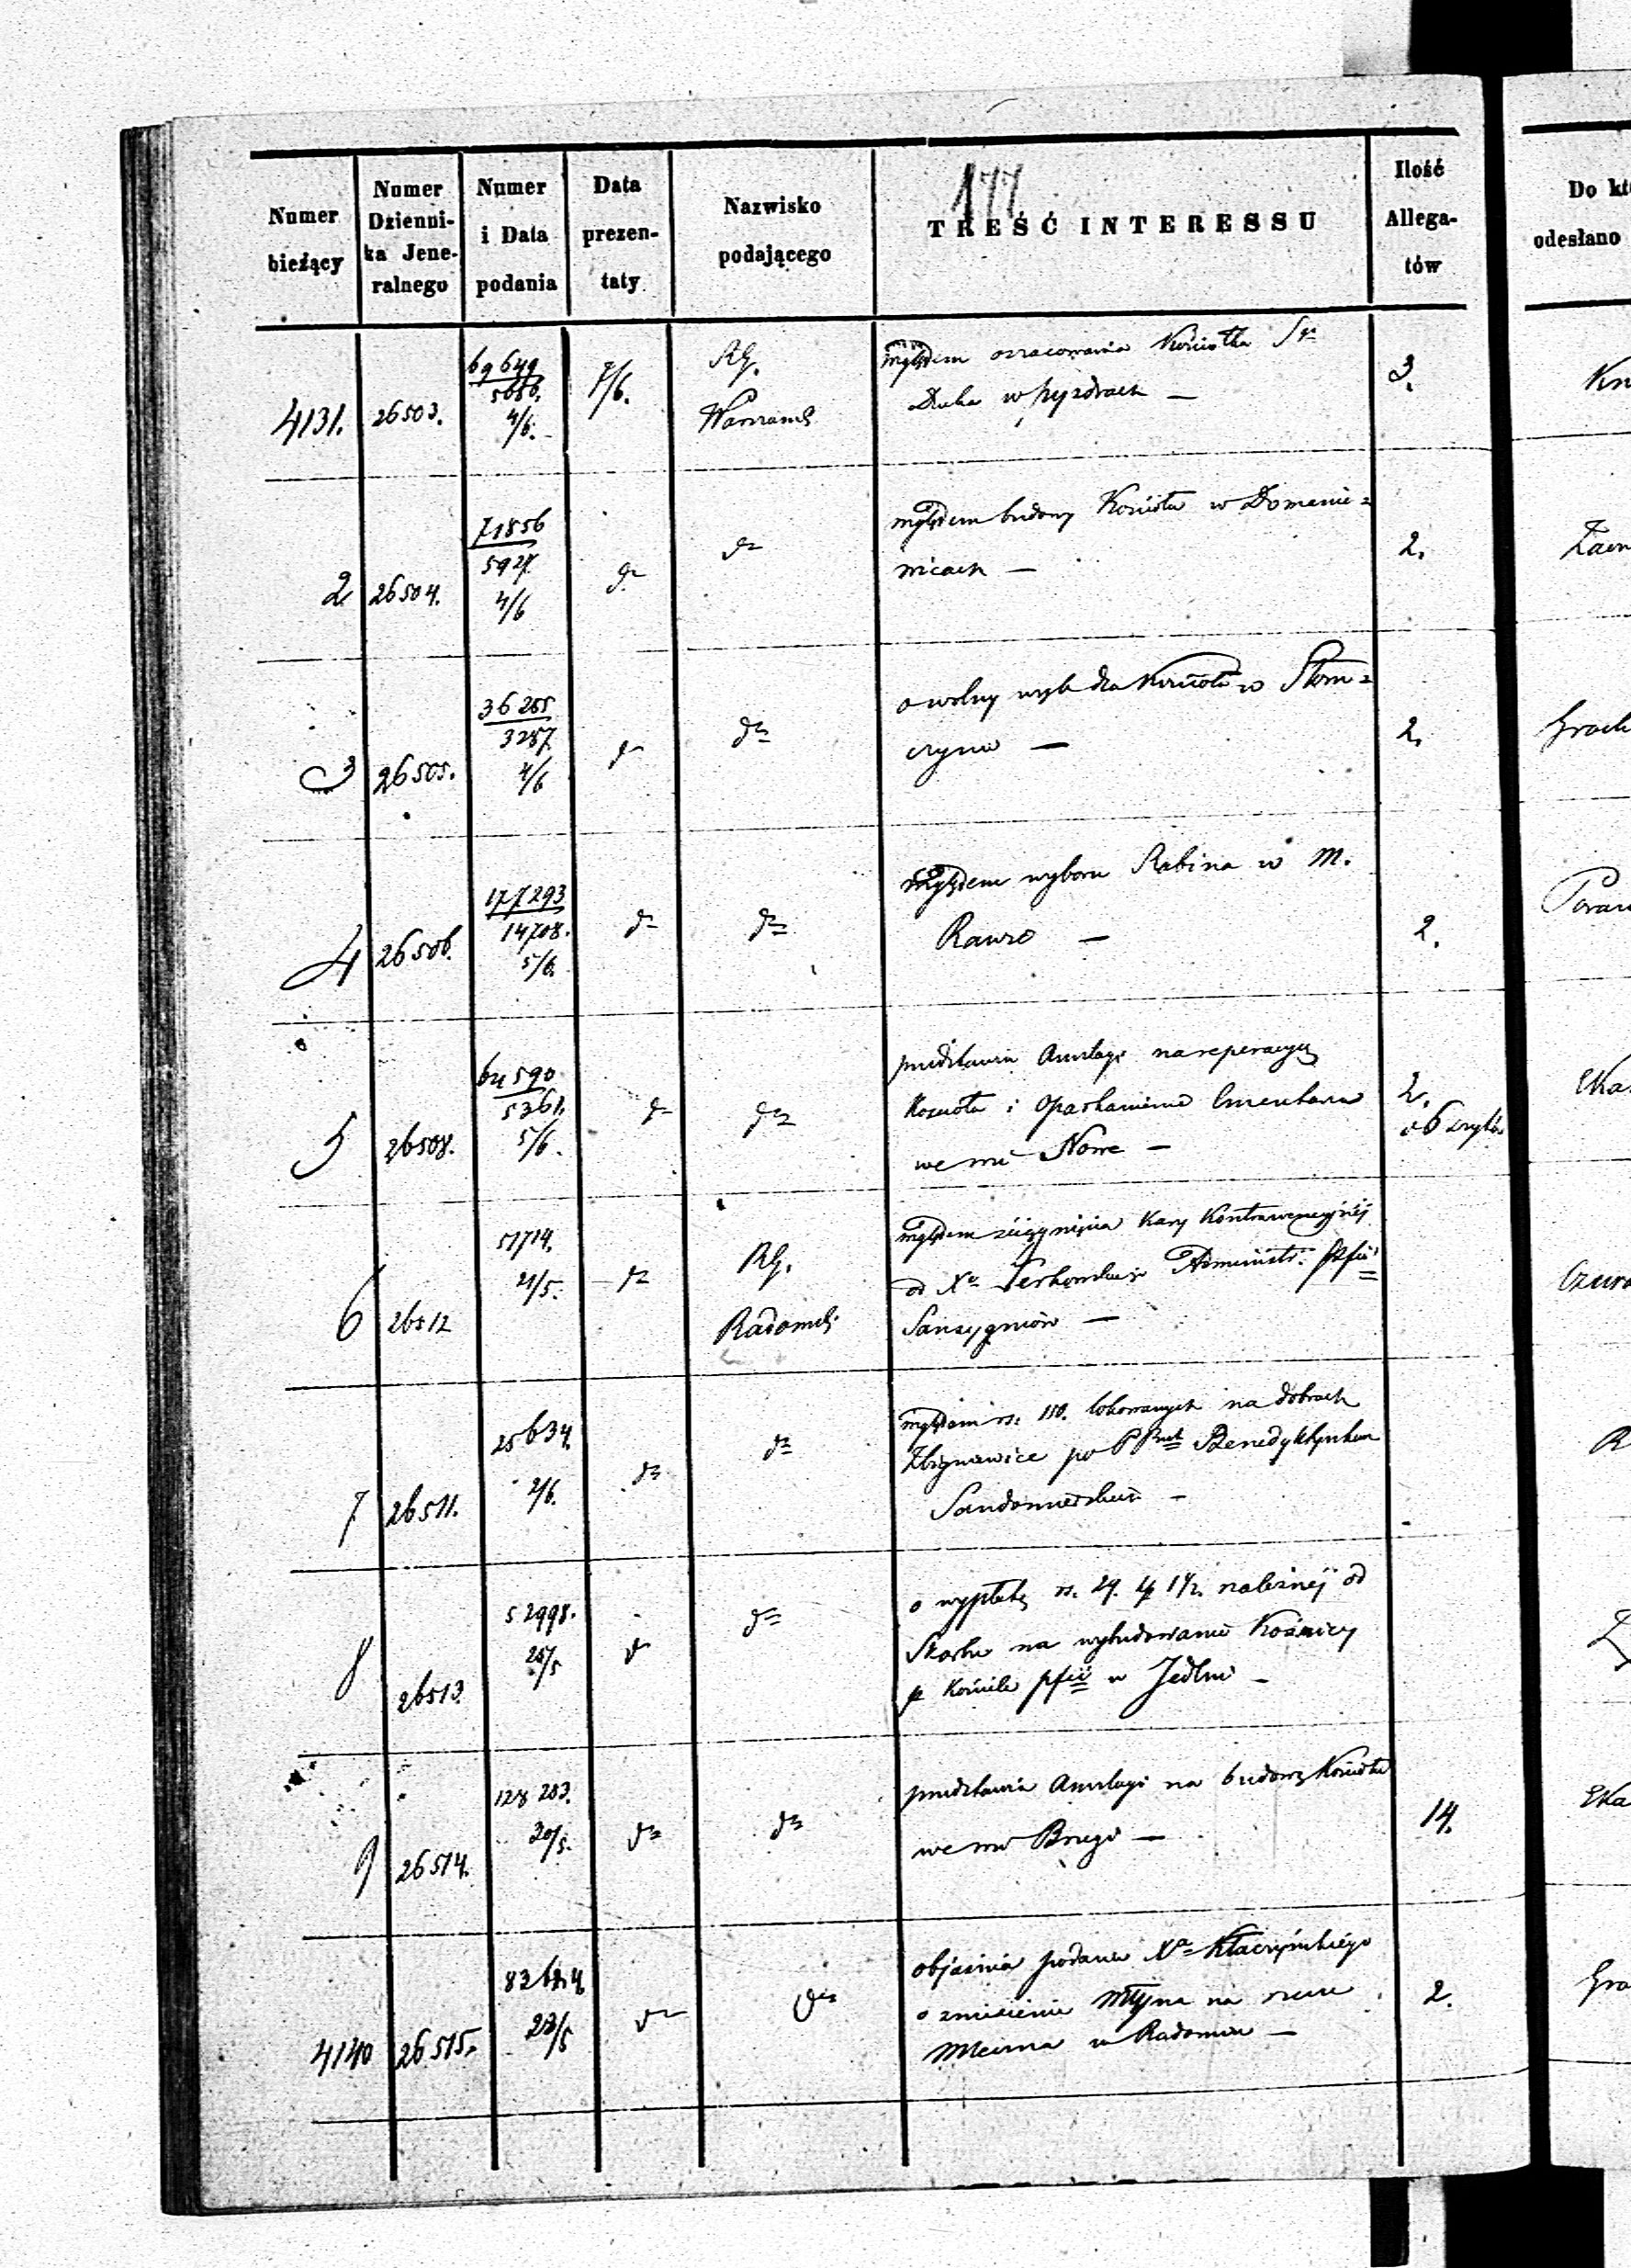 177
Numer bieżący
Numer Dzienni-ka Jene-ralnego
Numer i Data podania
Data prezen-taty
Nazwisko podającego
TREŚĆ INTERESSU
Ilość Allega-tów
Do kt
odesłano
4131. 26503. 69649 5656. 4/6. 7/6. RG. Warszaws względem oszacowania Kościołka Sgo 3.
Ducha w Pyzdrach —
2 26504. 71856 5927. 4/6 do do względem budowy Kościoła w Domanie= 2.
wicach —
3 26505. 36255 3287. 4/6 do do o wolny wyb dla Kościoła w Słom= 2.
czynie —
4 26506. 177293 14708. 5/6. do do względem wyboru Rabina w M. 2.
Rawie —
5 26508. 64590 5361. 5/6. do do przedstawia Anszlagi na reperacyą 2.
Kościoła i oparkanienie Cmentarza
we wsi Nowe —
6 26512 51714. 21/5. do RG. Radomski względem ściągnięcia Kary Kontrawencyjnéj
od Xa Administ:
Sancygniów —
7 26511. 25634. 2/6. do do względem rs. 150. lokowanych na dobrach
Zbigniewice po PP Benedyktynkach
Sandomierskich —
8 26513. 52998. 25/5 do do o wypłatę rs. 29. k 14½ należnéj od
Skarbu na wybudowanie Kośnicy
p Kościele pfii w Jedlni —
9 26514. 128283. 30/5. do do przedstawia Anszlagi na budowę Kościoła 14.
we wsi Brzegi —
4140 26515. 23/5 do do objaśnia podanie Xa Kłaczyńskiego 2.
o zniesienie Młyna na rzece
Mleczna w Radomiu —